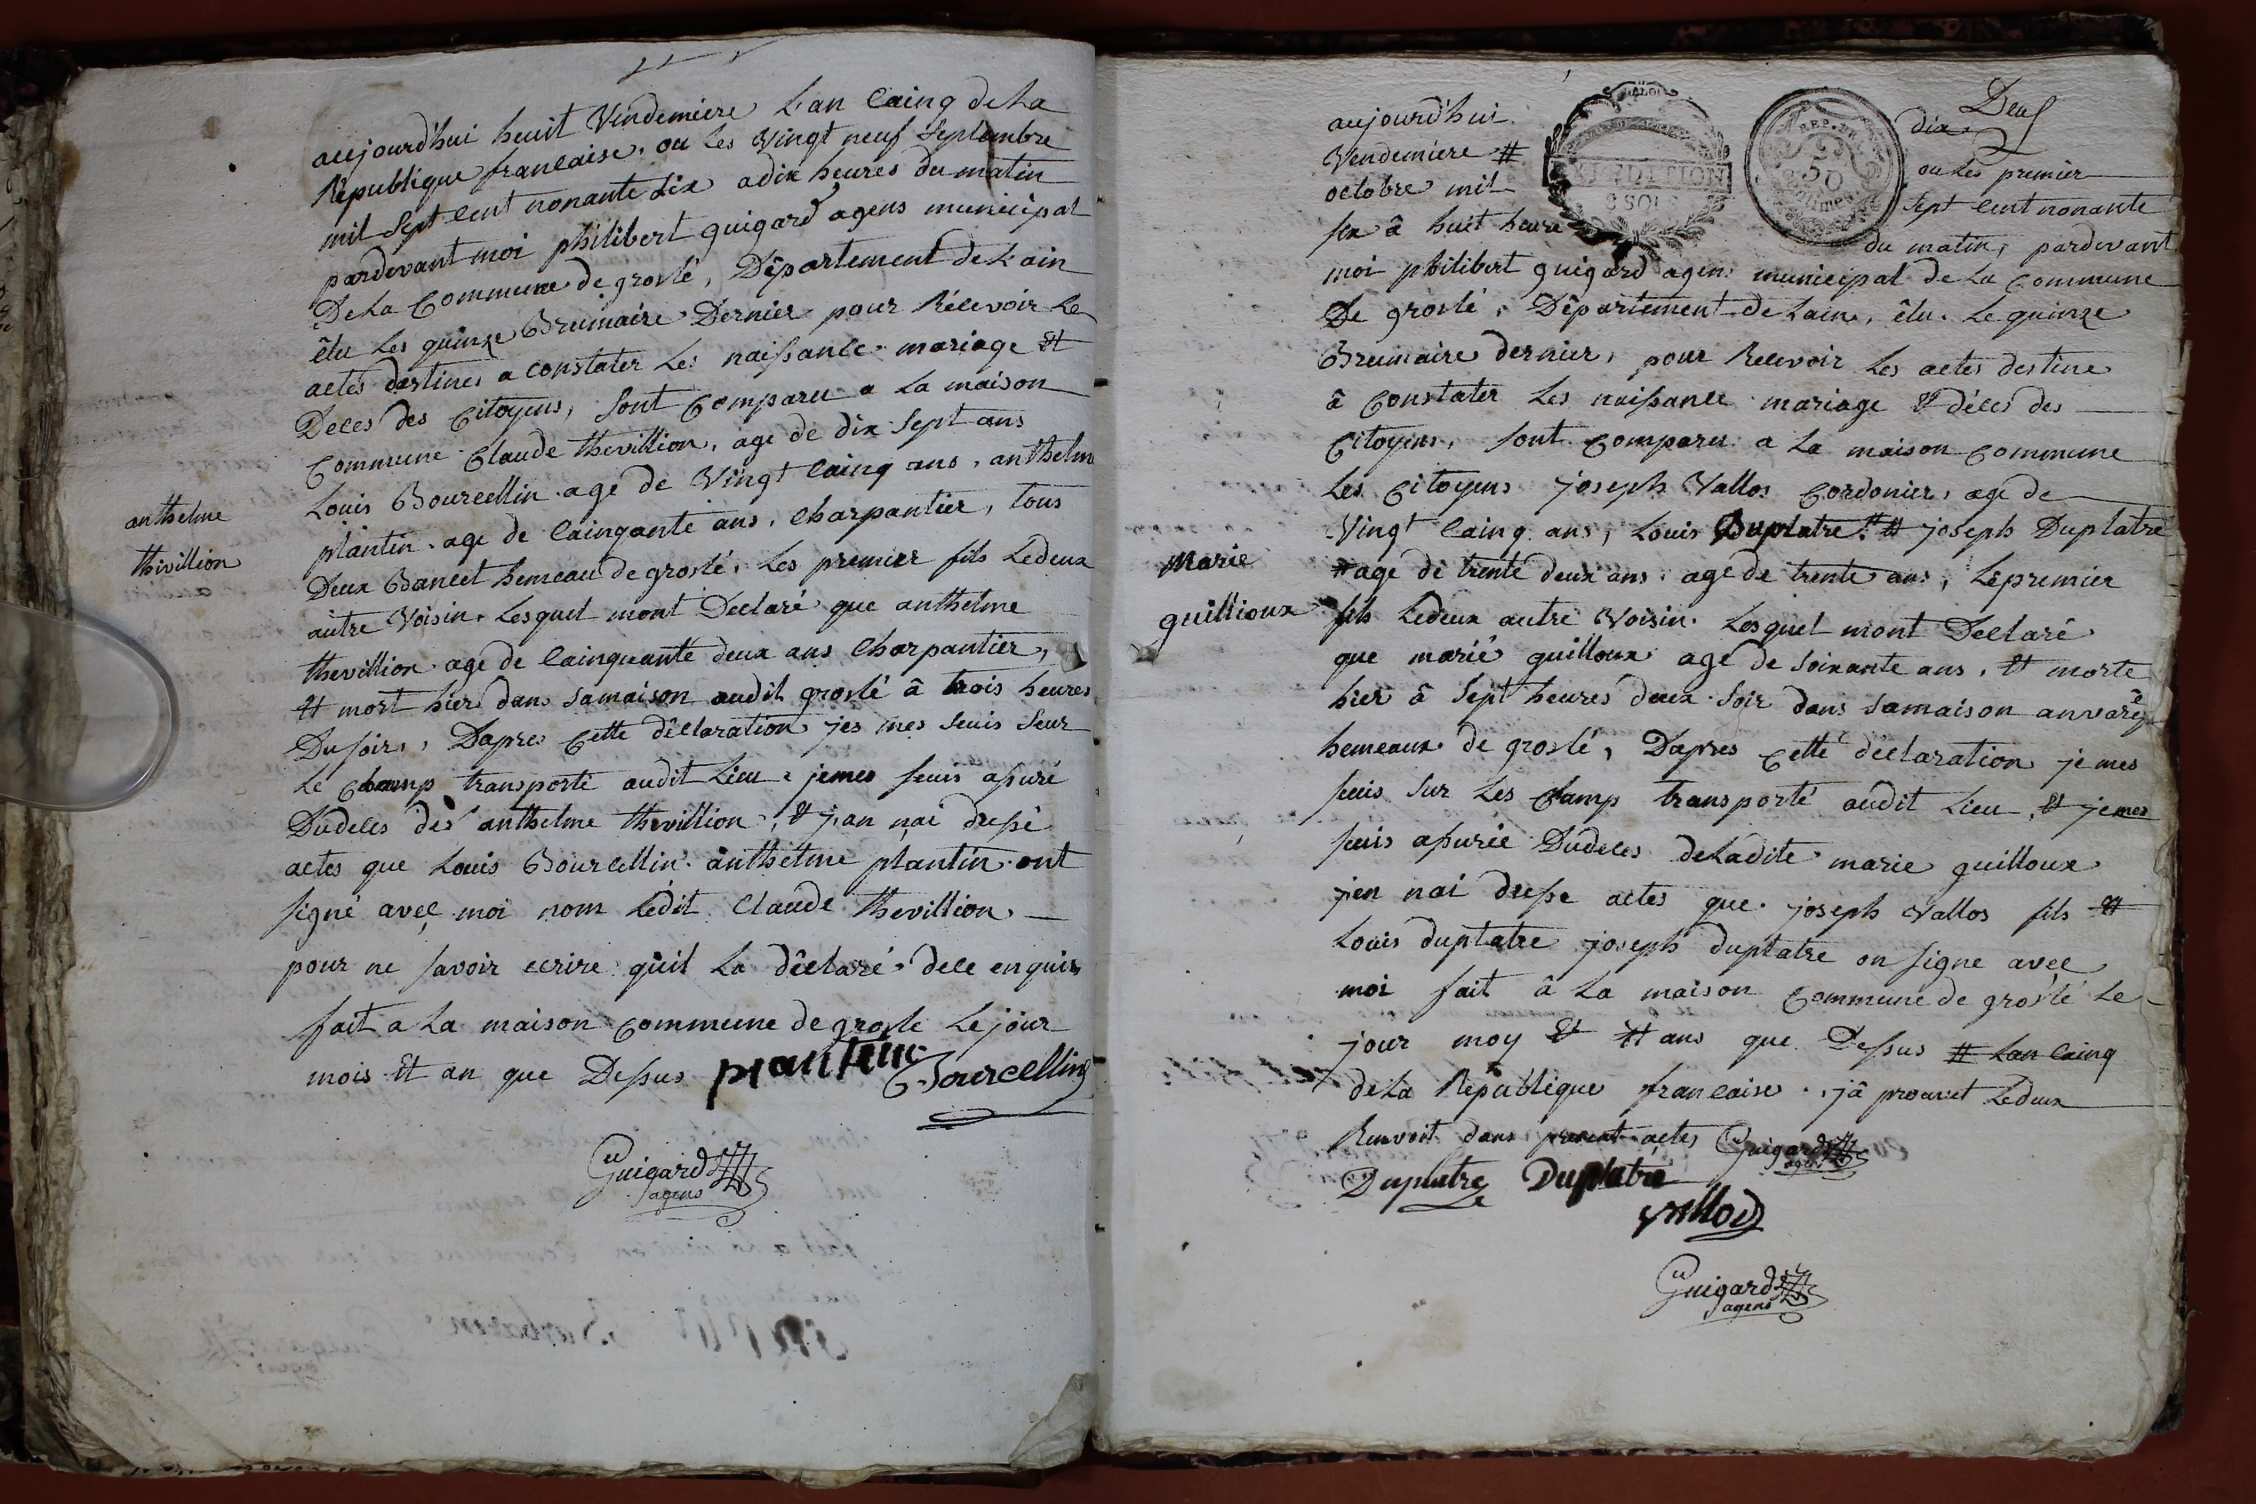 aujourd'hui heuit Vindemiere L'an Cainq de La
Republique francaise, ou Les Vingt neuf Septembre
mil Sept Cent nonante Six a dix heures du matin
pardevant moi philibert guigard agens municipal
De La Commune de groslé, Département de L'ain
êlu Les quinze Brumaire Dernier pour Récevoir Le
actes destines a constater Les naissance mariage et
Deces des Citoyens, Sont Comparu a La maison
Commune Claude thevillion, age de dix Sept ans
Louis Bourcellin age de Vingt Cainq ans, anthelm
plantin age de Cainqante ans, Charpantier, tous
Deux Bancet hemeau de groslé, Les premier fils Ledeux
autre Voisin, Lesquel mont Declaré que anthelme
thevillion age de Cainquante deux ans Charpantier,
et mort hier dans Samaison audit groslé à trois heures
Du soir, Dapres Cette déclaration jes mes Seuis Seur
Le Champ transporté audit Lieu jemes seuis assuré
Dudeces des anthelme thevillion, et j'an nai dressé
actes que Louis Bourcellin anthelme plantin ont
signé aveç moi nom Ledit Claude thevillion
pour ne savoir ecrire qu'il La déclaré dece enquis
fait a La maison Commune de grosle Le jour
mois et an que Dessus plantin Bourcellin
Guigard
agens
anthelme
thivillion
Deuf
aujourd'hui dix
Vendemiere # ou Les premier
octobre mil Sept Cent nonante
six â huit heure du matin, pardevant
moi philibert guigard agens municipal de La Commune
De groslé, Département de Lain, êlu Le quinze
Brumaire dernier, pour Recevoir Les actes destine
à Constater Les naissance mariage et décès des
Citoyens, Sont Comparu a La maison Commune
Les Citoyens joseph Vallos Cordonier, age de
Vingt Cainq ans, Louis Duplatre # joseph Duplatre
# age de trente deux ans age de trente ans, Lepremier
fils Ledeux autre Voisin Lesquel mont Declaré
que marie guilloux agé de Soixante ans, et morte
hier â Sept heures deux Soir dans Samaison
hemeaux de groslé, Dapres Cette déclaration je mes
seuis Sur Les Champ transporté audit Lieu, et jemes
seuis assurée Dudeces deLadite marie guilloux
jen nai dresse actes que joseph Vallos fils et
Louis duplatre joseph duplatre on signe avec
moi fait â La maison Commune de groslé Le
jour moy et et ans que Dessus # Lan Cainq
deLa Republique francaise, jâ prouvet Ledeux
Renvoit dans present actes Guigard
agens
Duplatre Duplatre
Vallod
Guigard
agens
Marie
guillioux
REP. FR.
50
Centimes